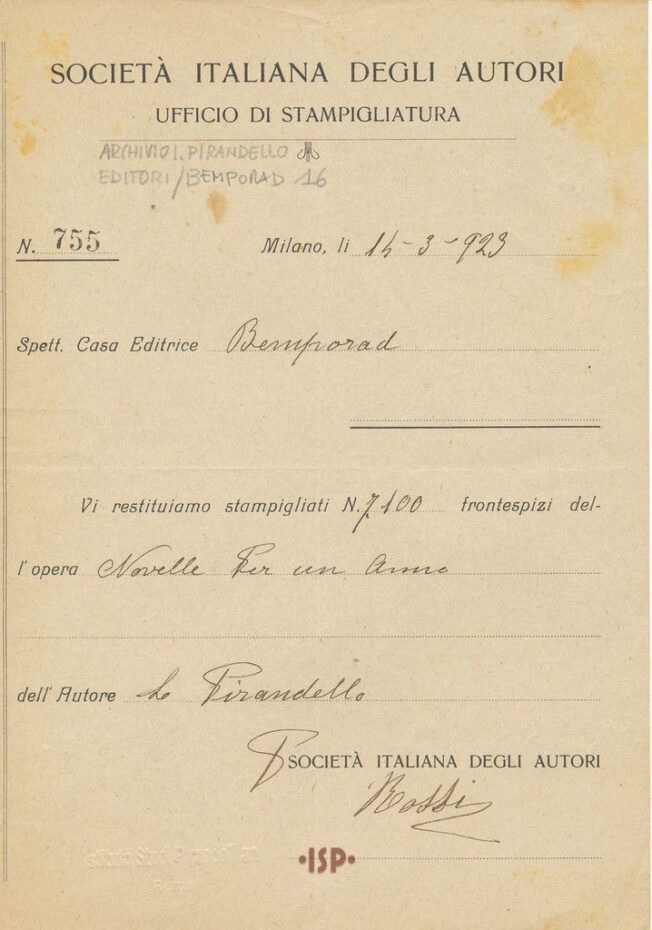 SOCIETÀ ITALIANA DEGLI AUTORI
UFFICIO DI STAMPIGLIATURA
ARCHIVIO L. PIRANDELLO
EDITORI/BEMPORAD 16
N. 755 Milano, li 14-3-923
Spett. Casa Editrice Bemporad
Vi restituiamo stampigliati N. 7100 frontespizi del-
l'opera Novelle Per un Anno
dell'Autore L. Pirandello
P SOCIETÀ ITALIANA DEGLI AUTORI
Rossi
•ISP•